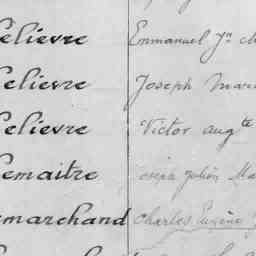 elievre Emmanuel Jn
elievre Joseph Mari
elievre Victor augte
emaitre Joseph Julien Ma
emarchand Charles Eugène